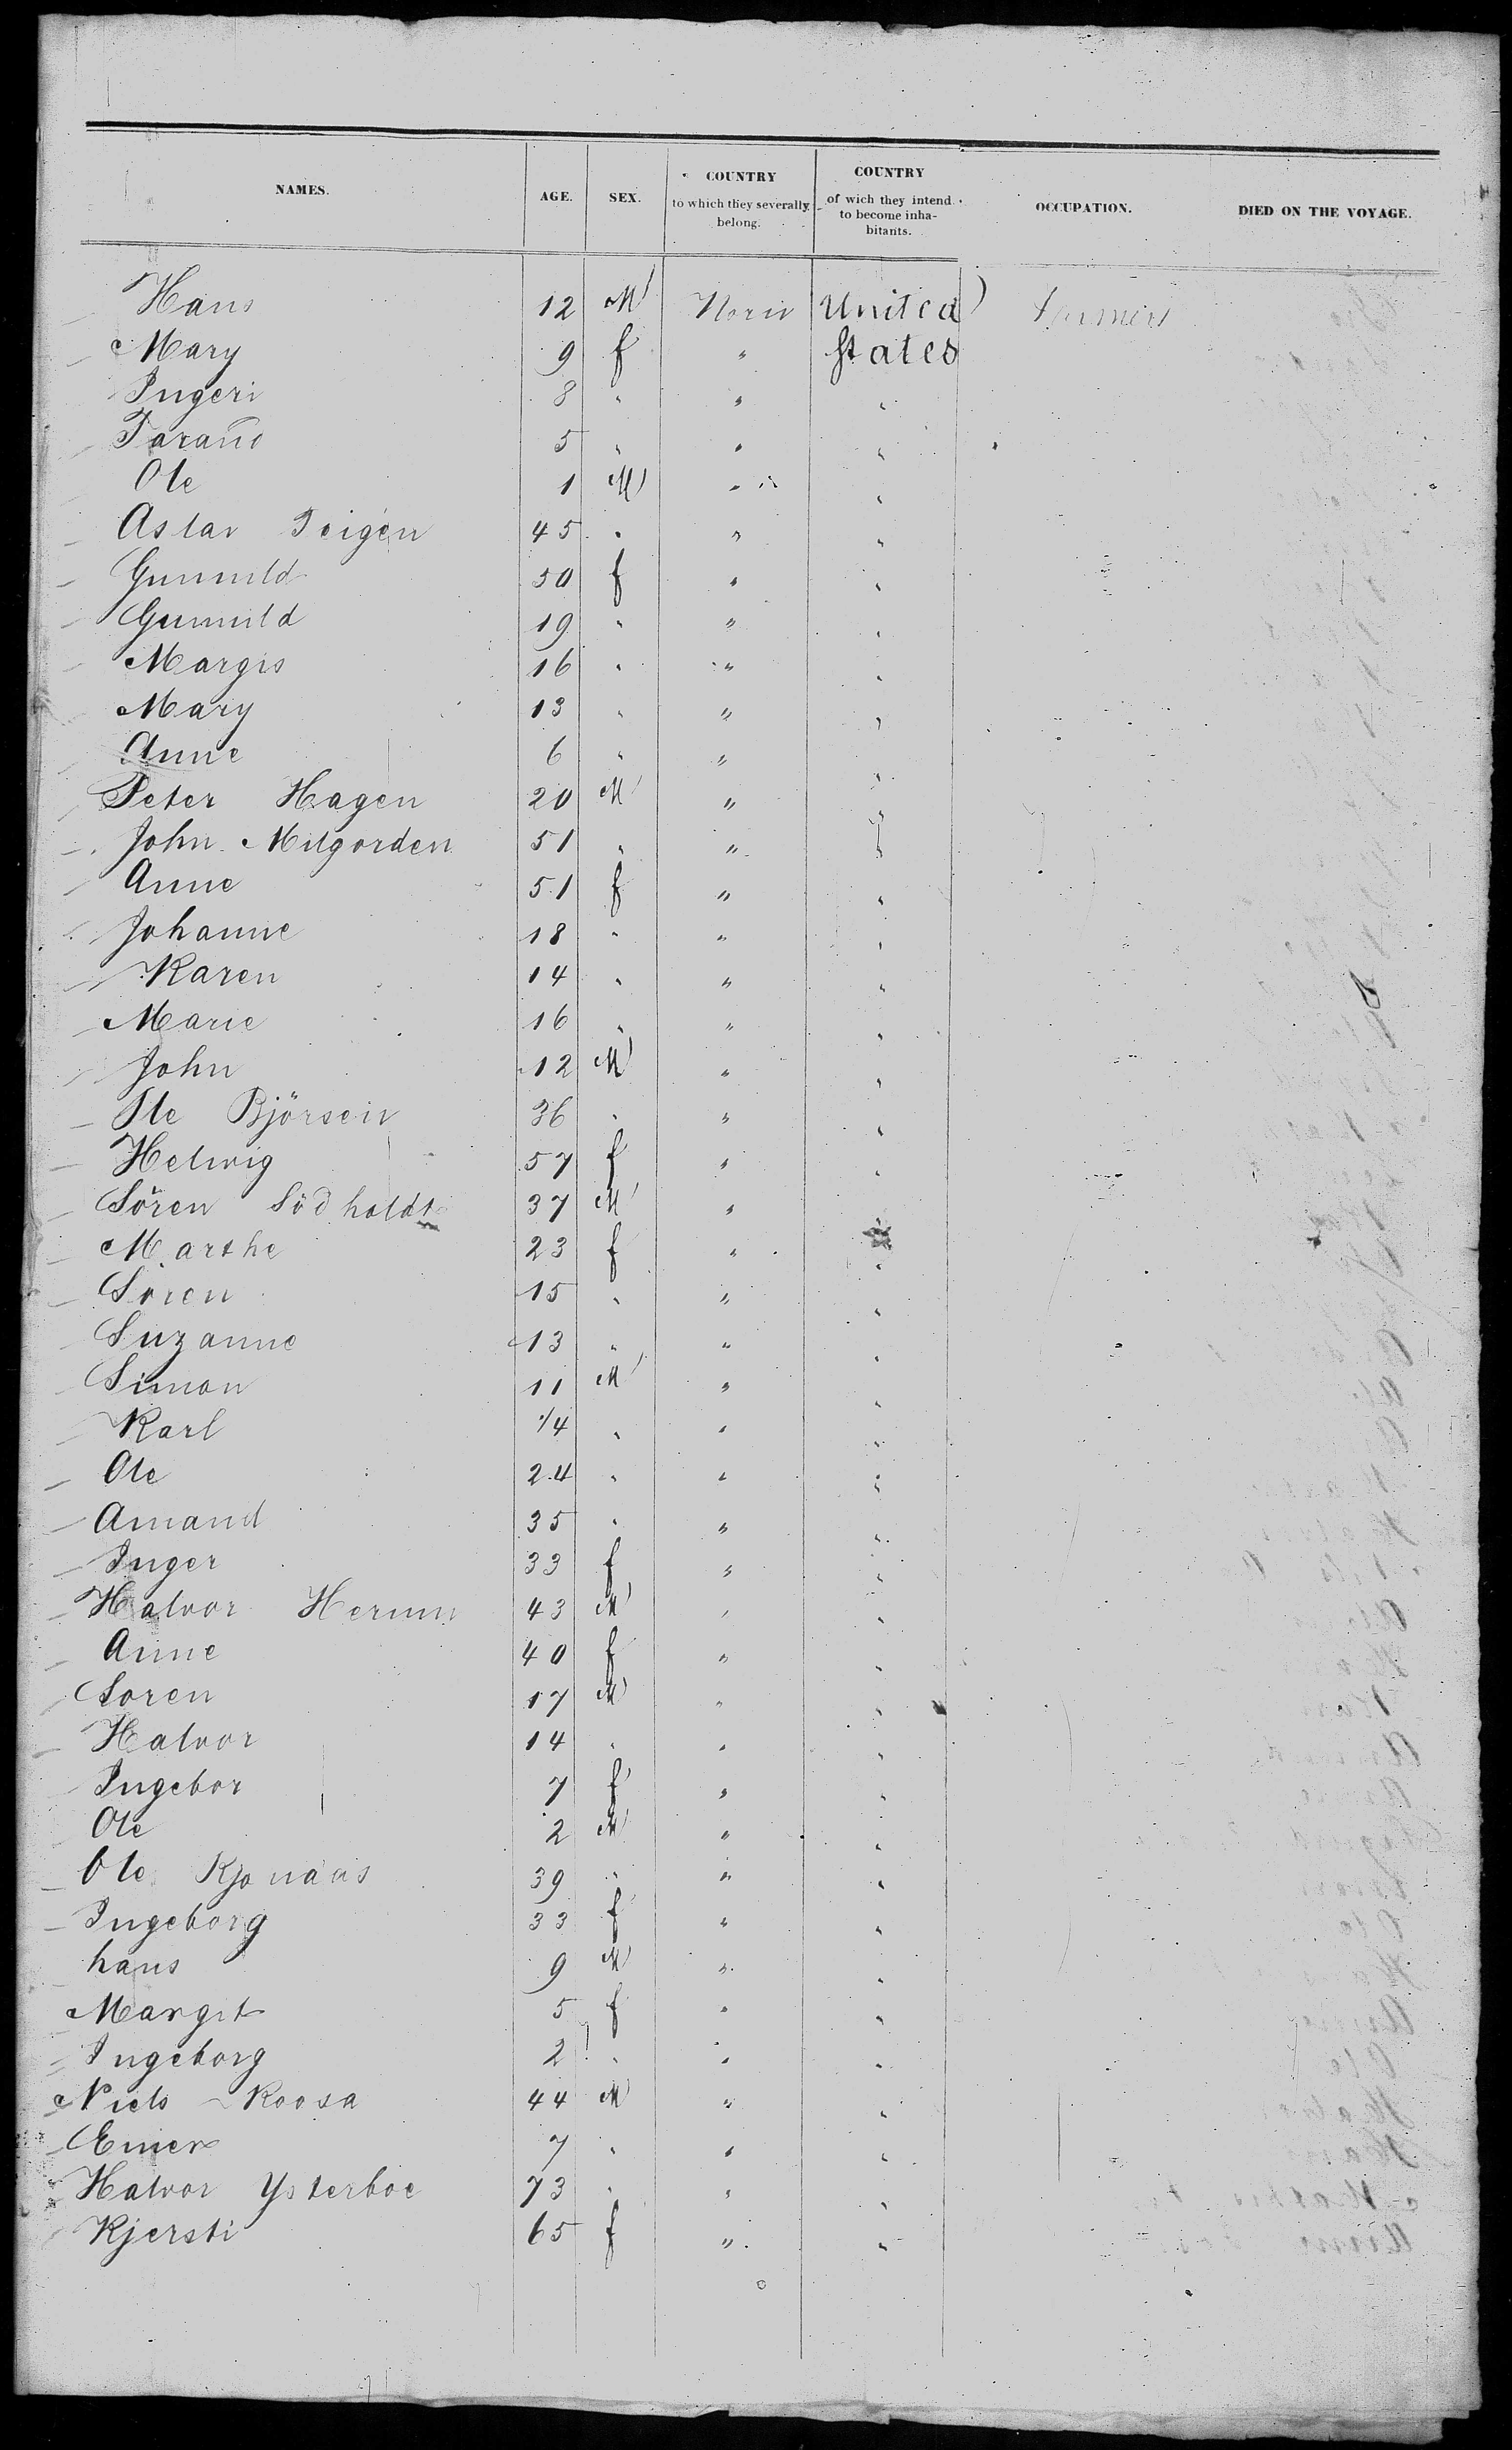 NAMES. AGE. SEX. COUNTRY to which they severally belong. COUNTRY of wich they intend to become inhabitants. OCCUPATION. DIED ON THE VOYAGE.
Hans 12 M Norw United farmers
Mary 9 f " States
Ingeri 8 " " "
5 " " "
Ole 1 M " "
Aslav Teigen 45 " " "
Gunnild 50 f " "
Gunnild 19 " " "
Margis 16 " " "
Mary 13 " " "
Anne 6 " " "
Peter Hagen 20 M " "
John Mitgorden 51 " " "
Anne 51 f " "
Johanne 18 " " "
Karen 14 " " "
Marie 16 " " "
John 12 M " "
Ole Björsein 36 " " "
Helwig 57 f " "
Sören Södholdt 37 M " "
Marthe 23 f " "
Soren 15 " " "
Suzanne 13 " " "
Simon 11 M " "
Karl 1/4 " " "
Ole 24 " " "
Amand 35 " " "
Inger 33 f " "
Halvor 43 M " "
Anne 40 f " "
Soren 17 M " "
Halvor 14 " " "
Ingebor 7 f " "
Ole 2 M " "
Ole Kjonaas 39 " " "
Ingeborg 33 f " "
hans 9 M " "
Margit 5 f " "
Ingeborg 2 " " "
Niels Roosa 44 M " "
Einer 7 " " "
Halvor Ysterboe 73 " " "
Kjersti 65 f " "